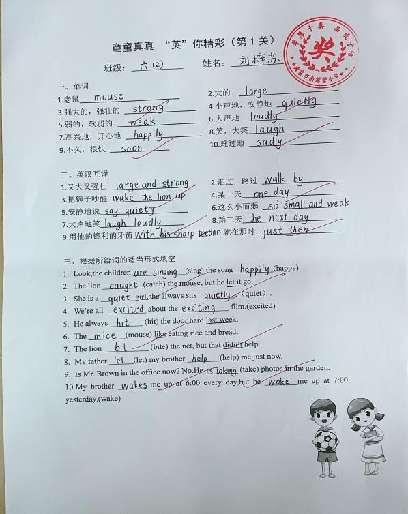 童童真真 "英"你精彩（第1关）
班级: 六(2) 姓名:
奖
一、单词
1.老鼠 mouse 2.大的 large
3.强大的，强壮的 strong 4.小声地，安静地 quietly
5.弱的，软弱的 weak 6.大声地 loudly
7.高兴地，开心地 happily 8.笑，大笑 laugh
9.不久，很快 soon 10.难过地 sadly
二、英汉互译
1.又大又强壮 large and strong 2.走过，路过 walk by
3.把狮子吵醒 wake the lion up 4.某一天 one day
5.安静地说 say quietly 6.这么小而弱 so small and weak
7.大声地笑 laugh loudly 8.第二天 the next day
9.用他的锋利的牙齿 with his sharp teeth 10.就在那时 just then
三、用所给词的适当形式填空
1. Look, the children are singing (sing) the song happily (happy).
2. The lion caught (catch) the mouse, but he let it go.
3. She is a quiet girl, she always is quietly (quiet).
4. We're all excited about the exciting film. (excited)
5. He always hit (hit) the dog here last week.
6. The mice (mouse) like eating rice and bread.
7. The lion (bite) the net, but that didn't help.
8. My father (let) my brother help (help) me just now.
9. Is Mr Brown in the office now? No. He is taking (take) photos in the garden.
10. My brother wakes me up at 6:00 every day, but he wake me up at 7:00
yesterday. (wake)